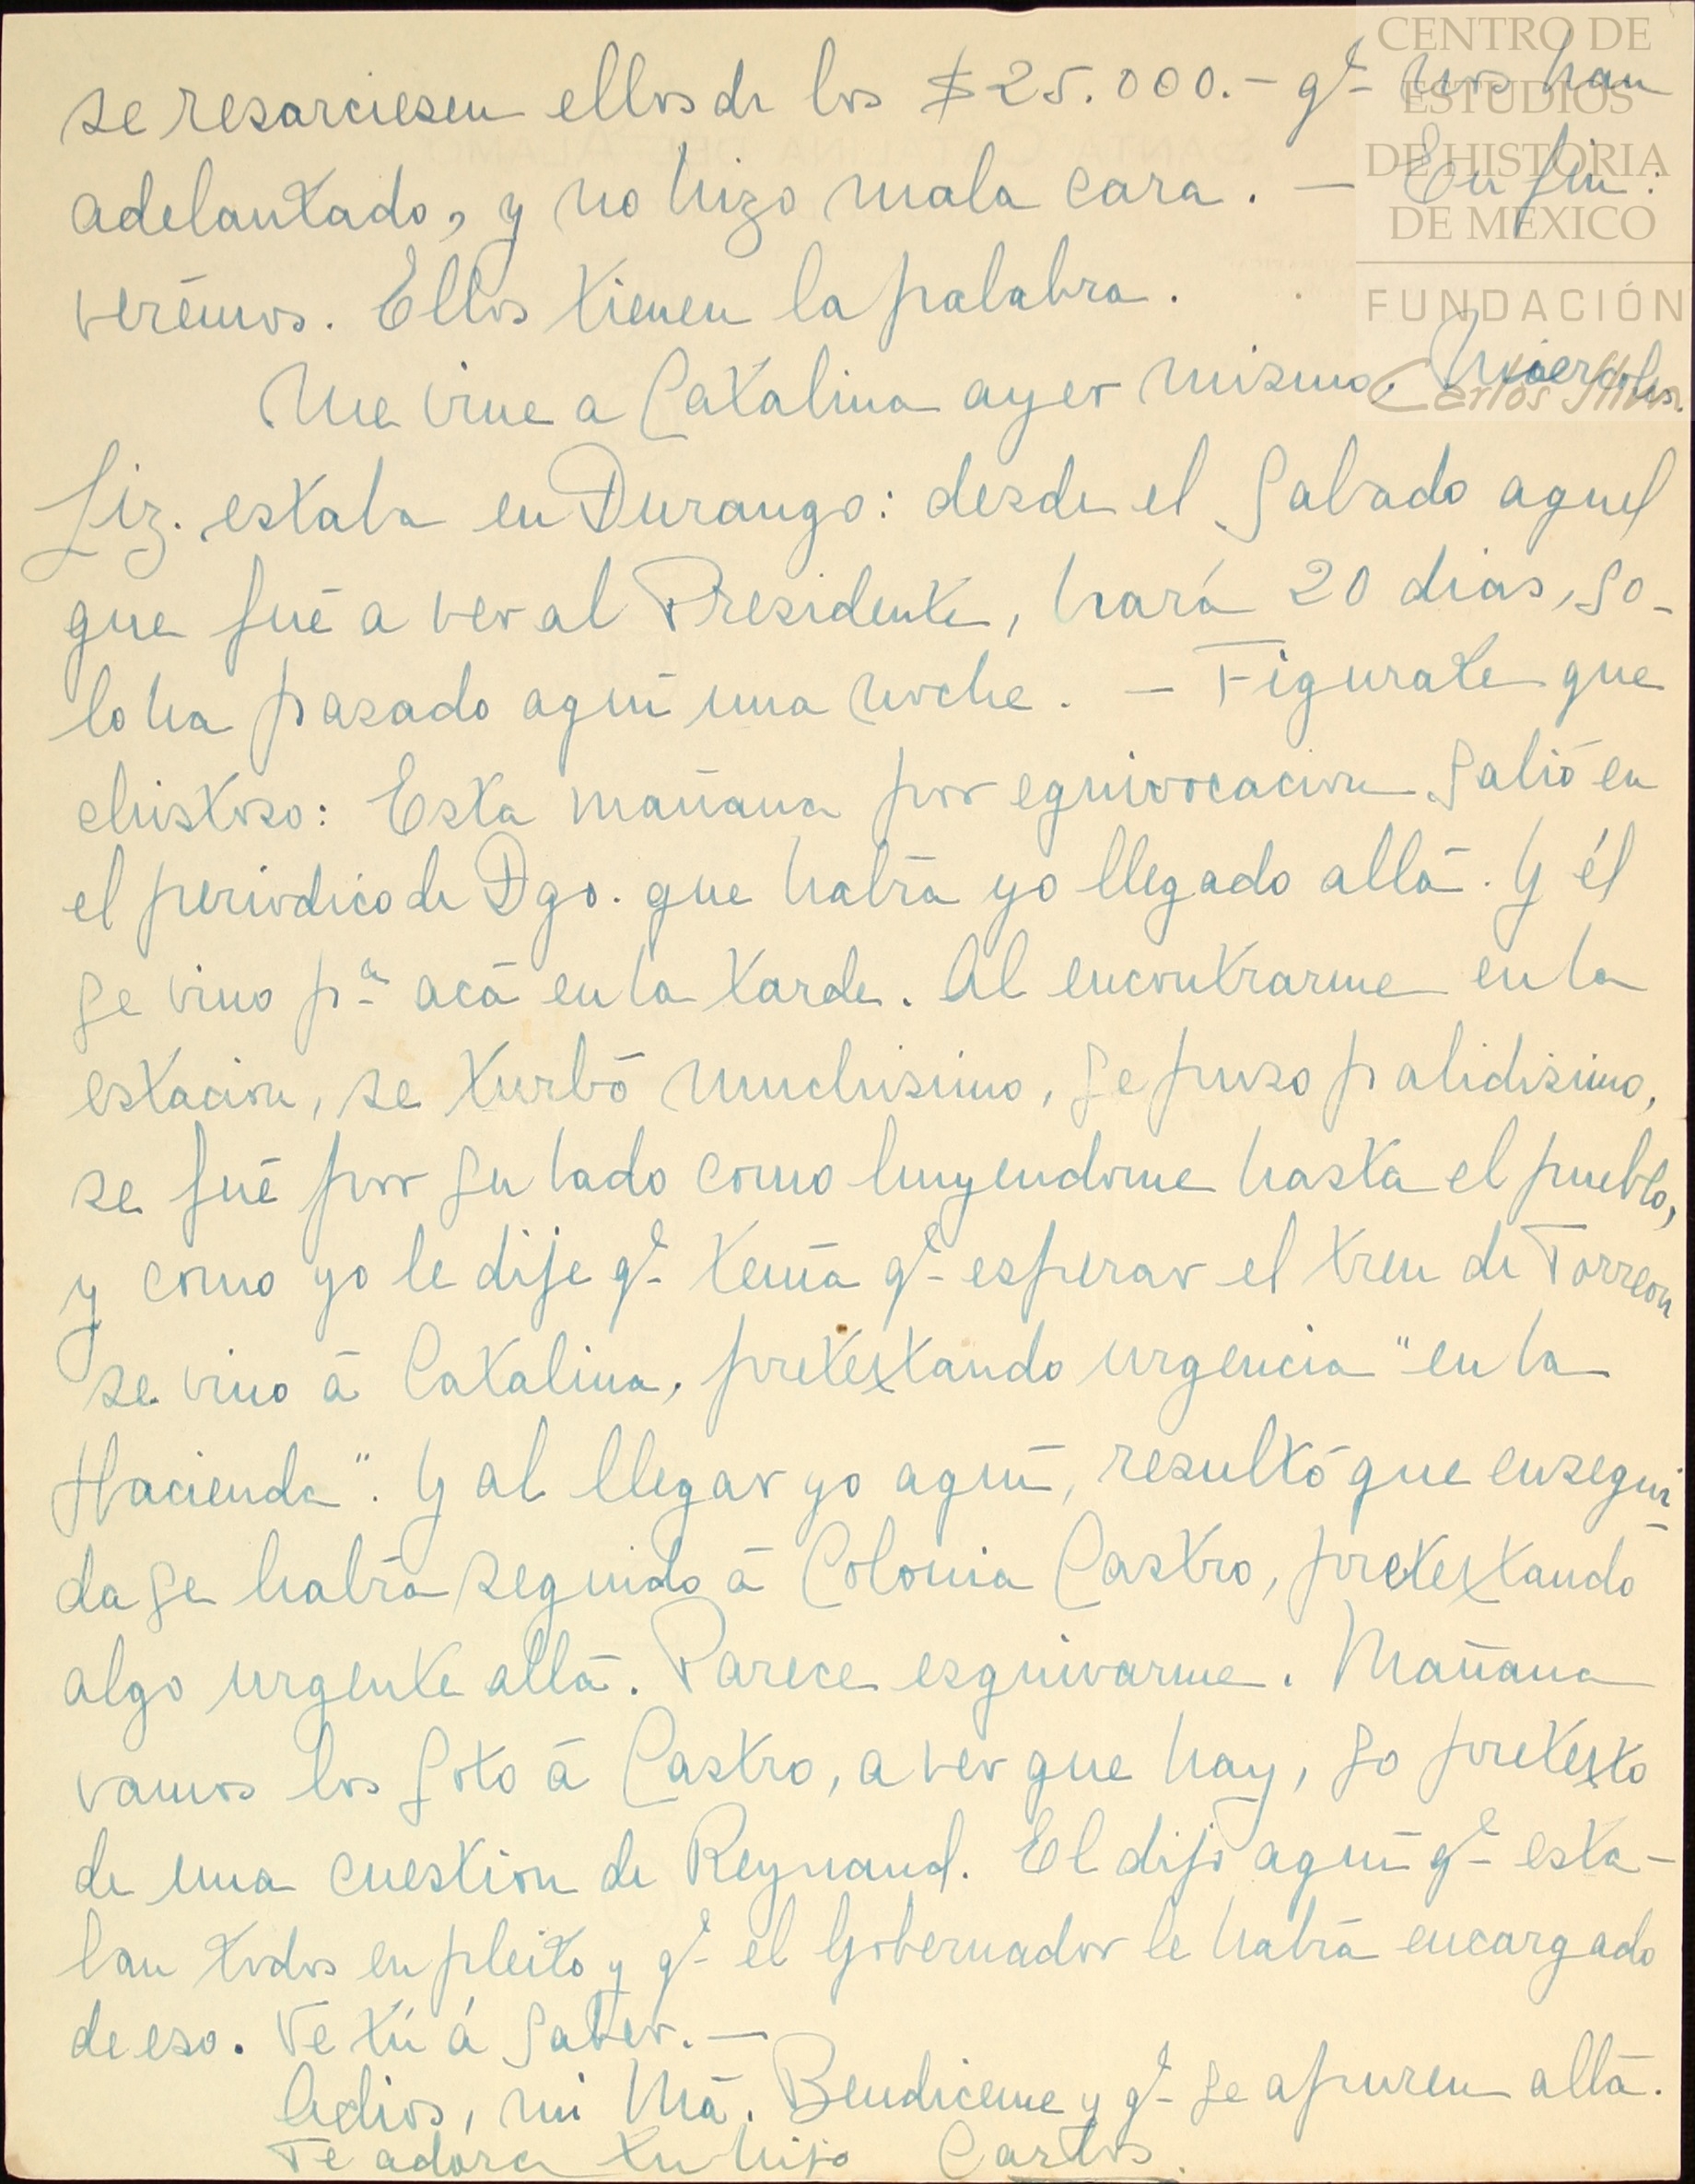 se resarciesen ellos de los $25.000.- qe nos han
adelantado, y no hizo mala cara. — En fin:
verémos. Ellos tienen la palabra.
Me vine a Catalina ayer mismo, Miercoles.
Liz. estaba en Durango: desde el Sabado aquel
que fué a ver al Presidente, hará 20 dias, so-
lo ha pasado aquí una noche. — Figurate que
chistoso: Esta mañana por equivocacion salió en
el periodico de Dgo. que había yo llegado allá. Y él
se vino pa acá en la tarde. Al encontrarme en la
estacion, se turbó muchisimo, se puso palidisimo,
se fué por su lado como huyendome hasta el pueblo,
y como yo le dije qe tenía qe esperar el tren de Torreon
se vino á Catalina, pretextando urgencia "en la
Hacienda". Y al llegar yo aquí, resultó que ensegui
da se había seguido á Colonia Castro, pretextando
algo urgente allá. Parece esquivarme. Mañana
vamos los Soto á Castro, a ver que hay, so pretexto
de una cuestion de Reynaud. El dijo aquí qe esta-
ban todos en pleito y qe el Gobernador le había encargado
de eso. Vé tú á saber. —
Adios, mi Má. Bendiceme y qe se apuren allá.
Te adora tu hijo Carlos.
CENTRO DE
ESTUDIOS
DE HISTORIA
DE MÉXICO
FUNDACIÓN
Carlos Slim